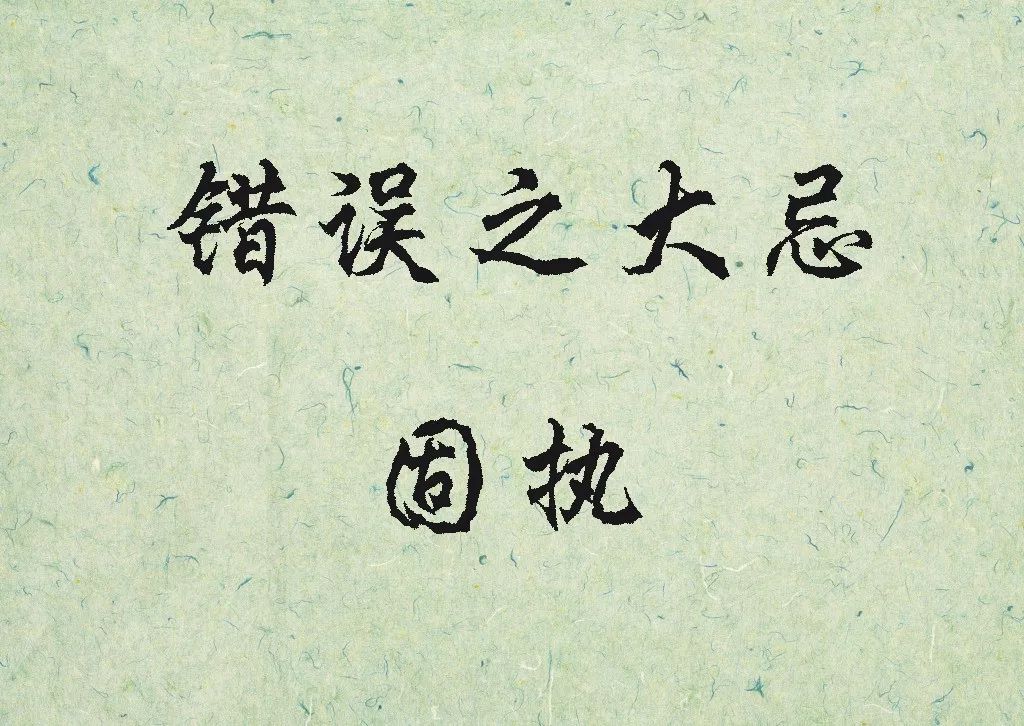 错误之大忌
固执